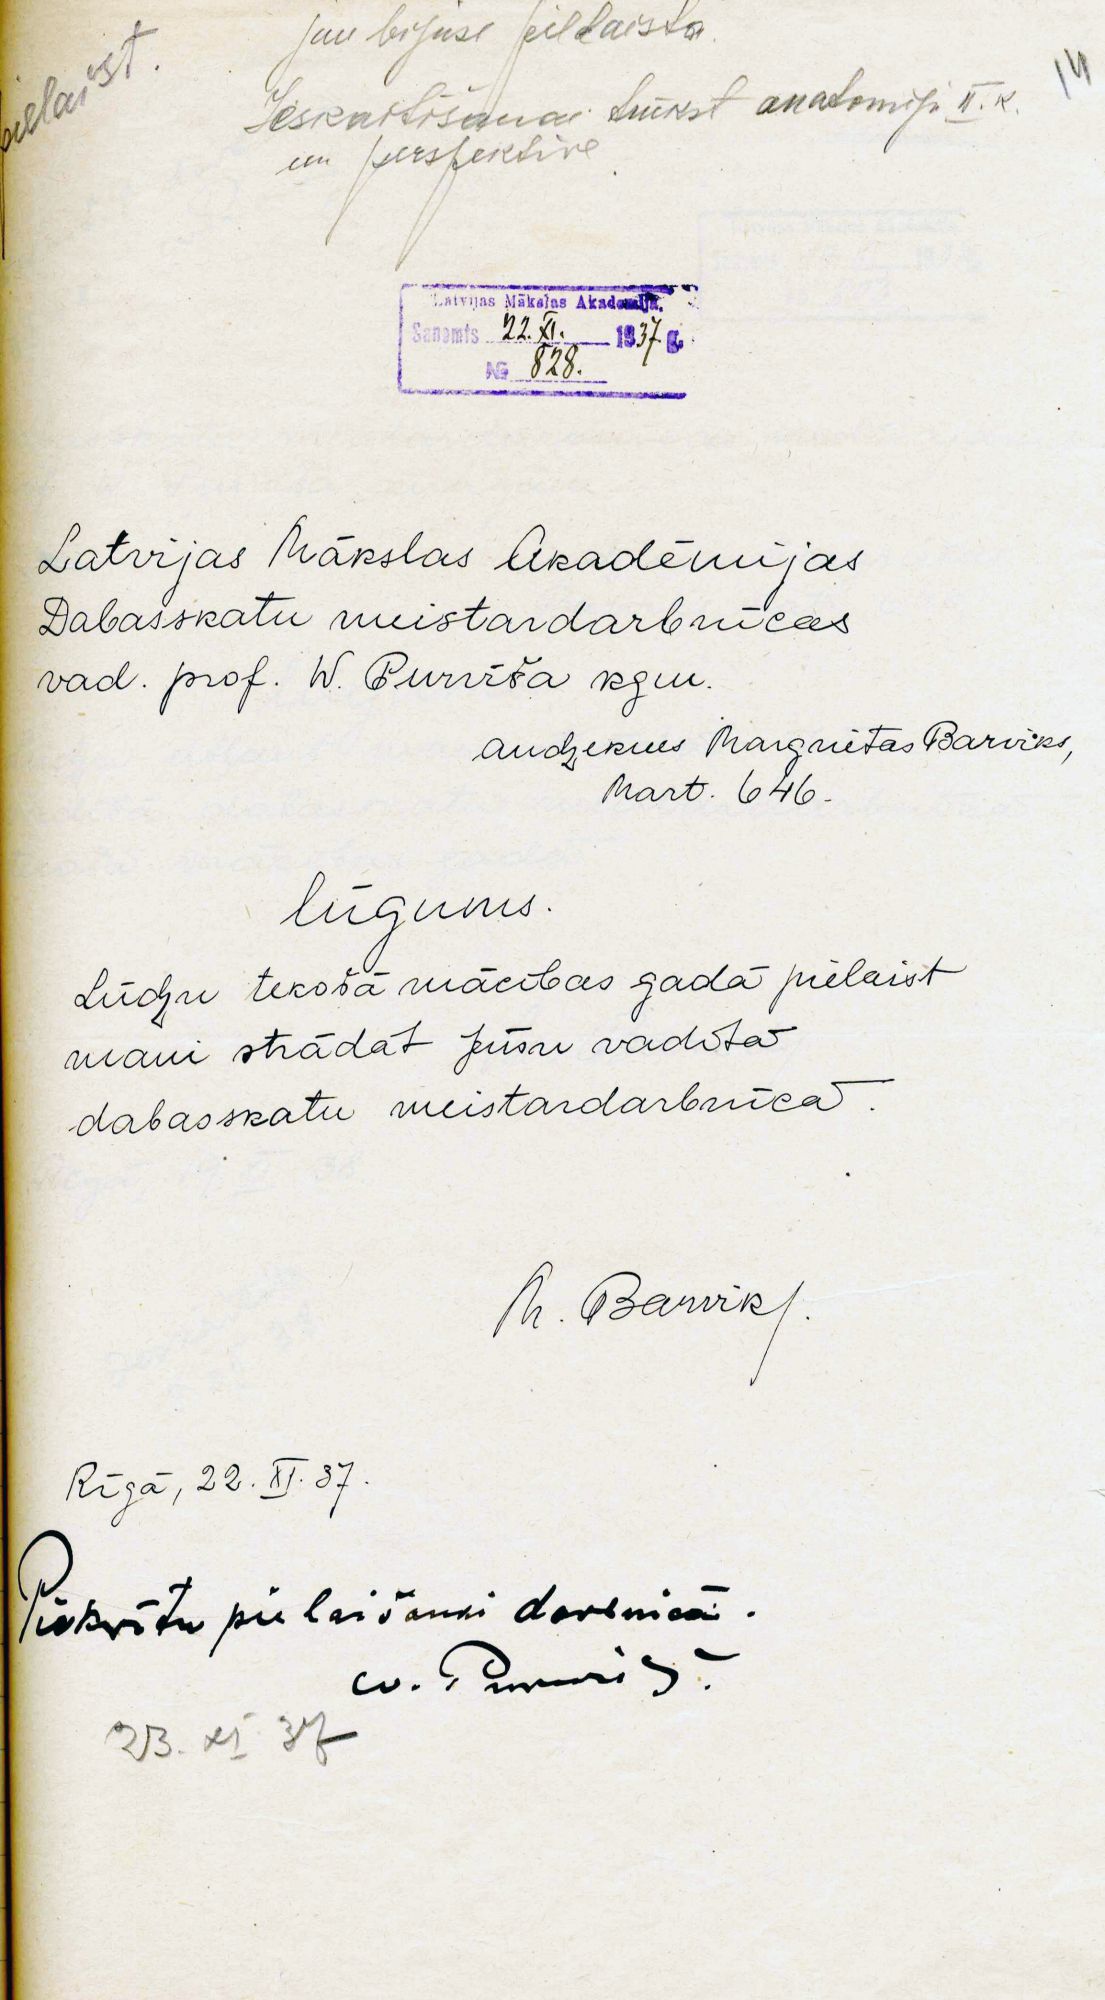 pielaist.
jau bijuse pielaista.
14
Ieskaitīšanai trūkst anatomija II. k.
un perspektive
Latvijas Mākslas Akademija.
Saņemts 22. XI. 1937 g.
№ 828.
Latvijas Mākslas Akadēmijas
Dabasskatu meistardarbnīcas
vad. prof. W. Purvīša kgm.
audzeknes Margrietas Barviks,
Mart. 646.
lūgums.
Lūdzu tekošā mācības gadā pielaist
mani strādāt Jūsu vadītā
dabasskatu meistardarbnīcā.
M. Barviks.
Rīgā, 22. XI. 37.
Piekrītu pielaišanai darbnicā.
W. Purvīts.
23. XI 37